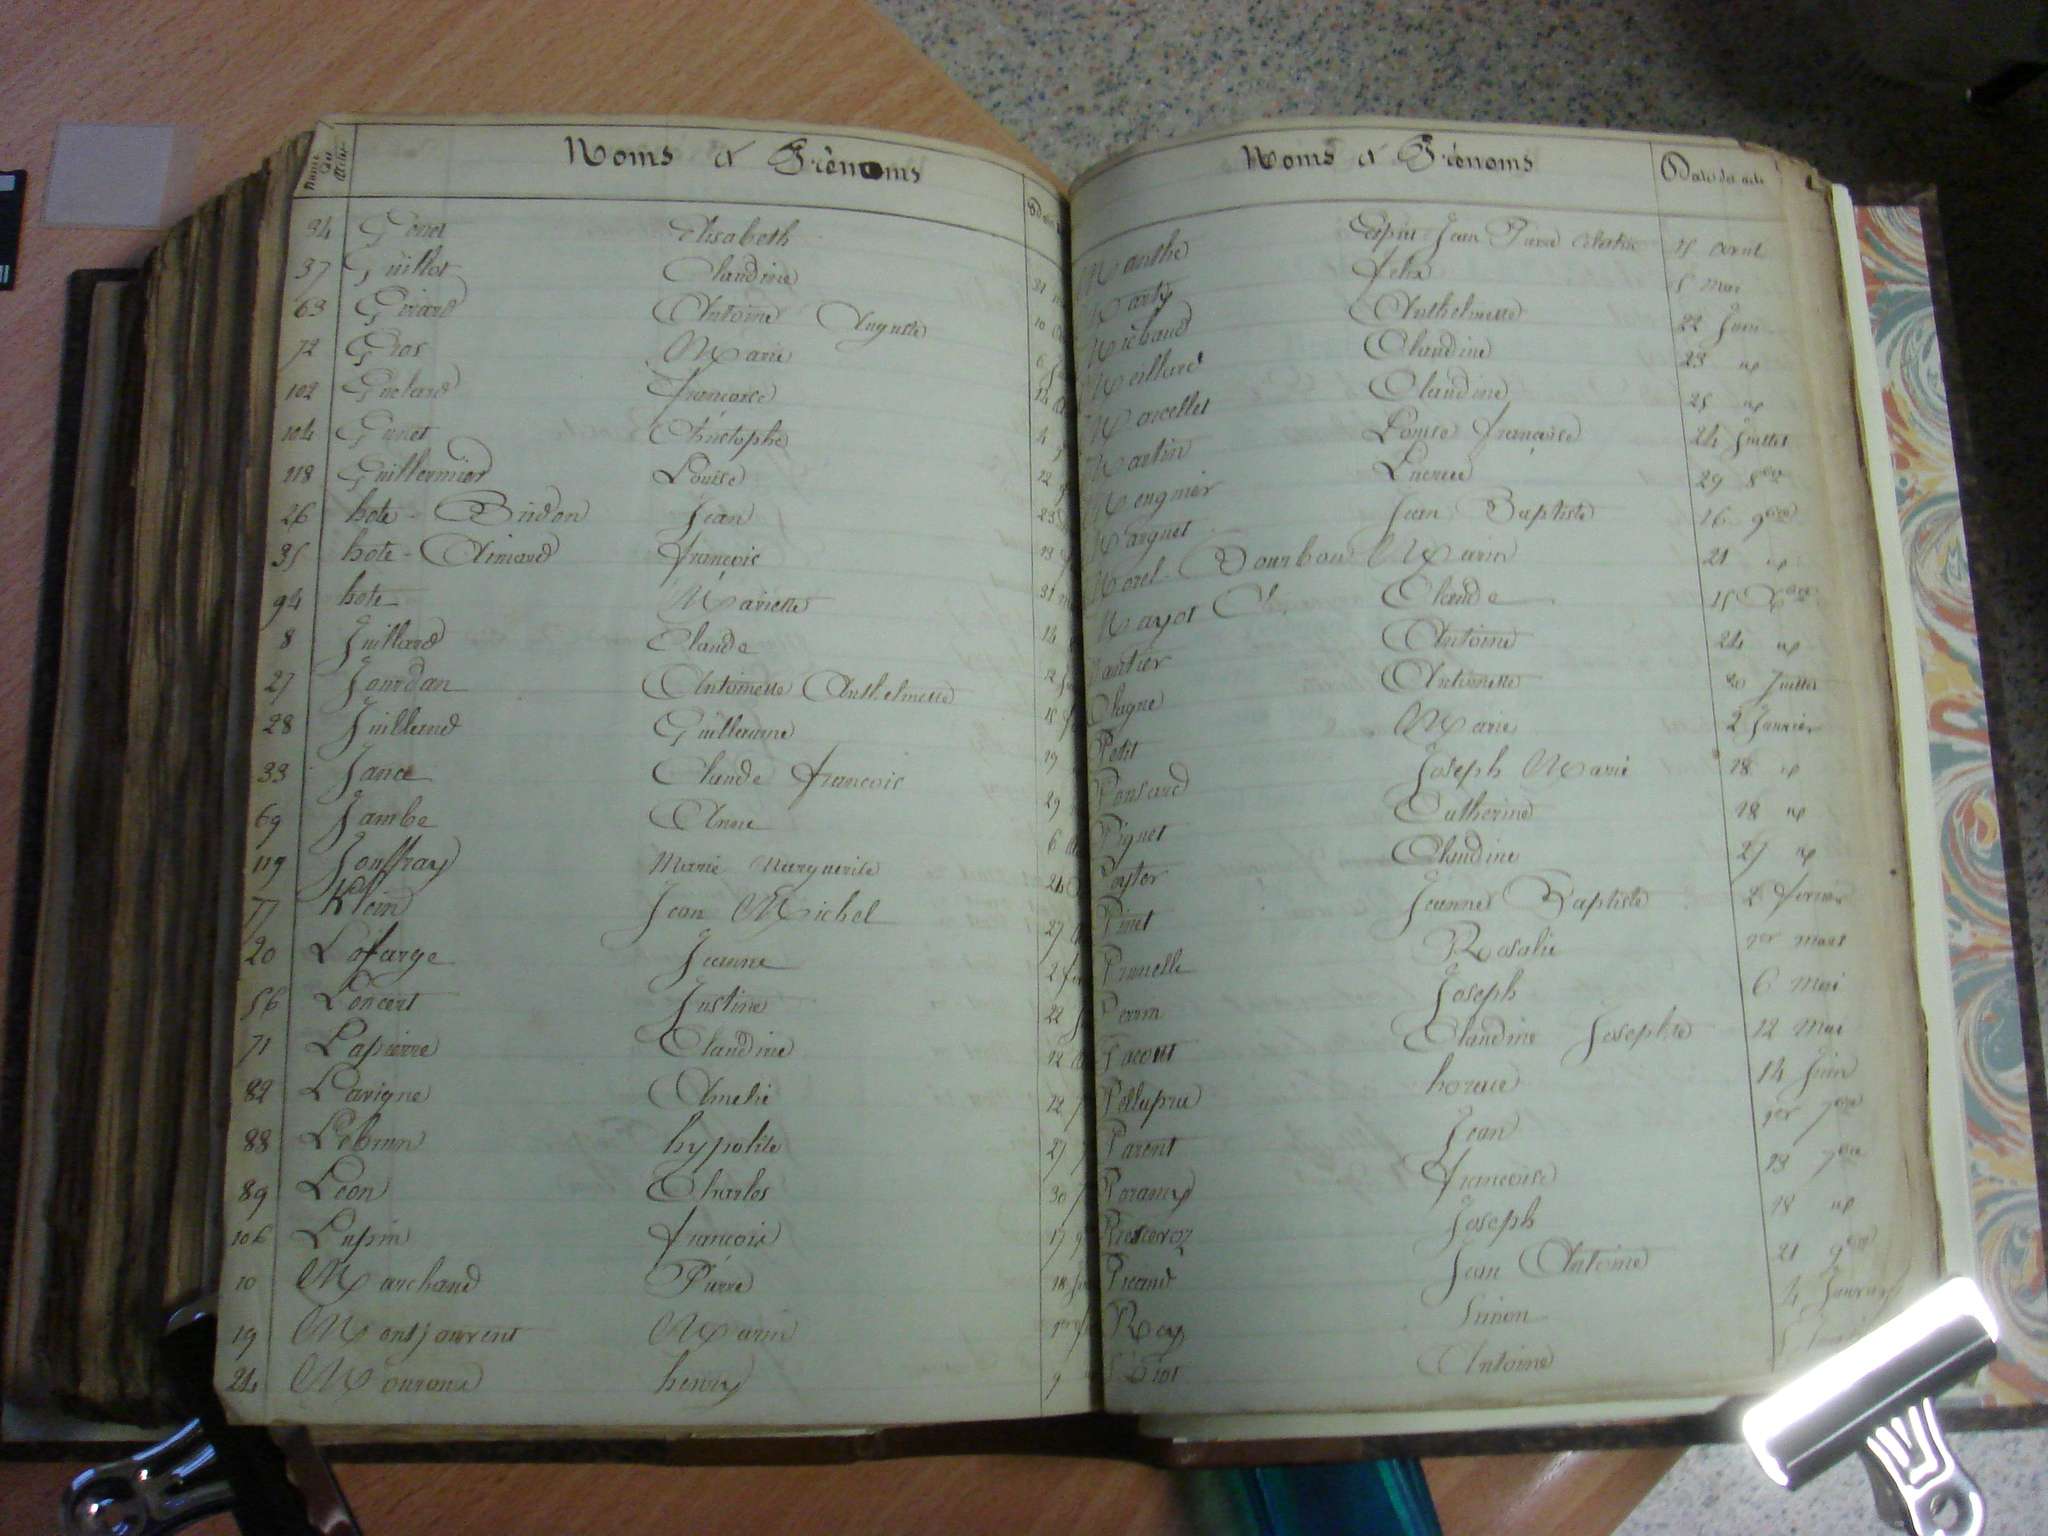 Noms et Prénoms
34 Genet Elisabeth
37 Guillot Claudine 31
63 Girard Antoine Auguste 10
72 Gros Marie 6
102 Guelard francoise 14
104 Gunet Christophe 4
118 Guillermier Louise 12
26 hote - Bindon Jean 23
35 hote - Aimard francois 13
94 hote Mariette 31
8 Juillard Claude 14
27 Jourdan Antoinette Anthelmette 12
28 Juillard Guillaume 15
33 Jance Claude francois 19
69 Jambe Anne 29
119 Jouffray Marie Marguerite 6
77 Klein Jean Michel 24
20 Lafarge Jeanne 27
56 Loncert Justine 2
71 Lapierre Claudine 22
82 Lavigne Amelie 12
88 Lebrun hypolite 12
89 Leon Charles 27
106 Lupin francois 30
10 Marchand Pierre 17
19 Montjouvent Marin
24 henry 9
Noms et Prénoms Date des acte
Manthe Jean Pierre 15 Avril
Marty felix 5 Mai
Richaud Anthelmette 22 Juin
Meillard Claudine 23 id
Marcellet Claudine 25 id
Martin Louise francoise 24 Juillet
Mengnier Lucrece 29 8bre
Marguet Jean Baptiste 16 9bre
Morel - Bourbon Marin 21 id
Mayot Claude 15 Xbre
Antoine 24 id
Antoinette 20 Juillet
Petit Marie 2 Janvier
Ponsard Joseph Marie 18 id
Pignet Catherine 18 id
Claudine 27 id
Pinet Jeanne Baptiste fevrier
Prunelle Rosalie 1er mars
Perrin Joseph 6 Mai
Pacout Claudine Josephte 12 Mai
Pelluprie horace 14 Juin
Parent Jean 1er 7bre
francoise 13 7bre
Joseph 18 id
Picaud Jean Antoine 21 9bre
Roy Simon 4 Janvier
Antoine 5